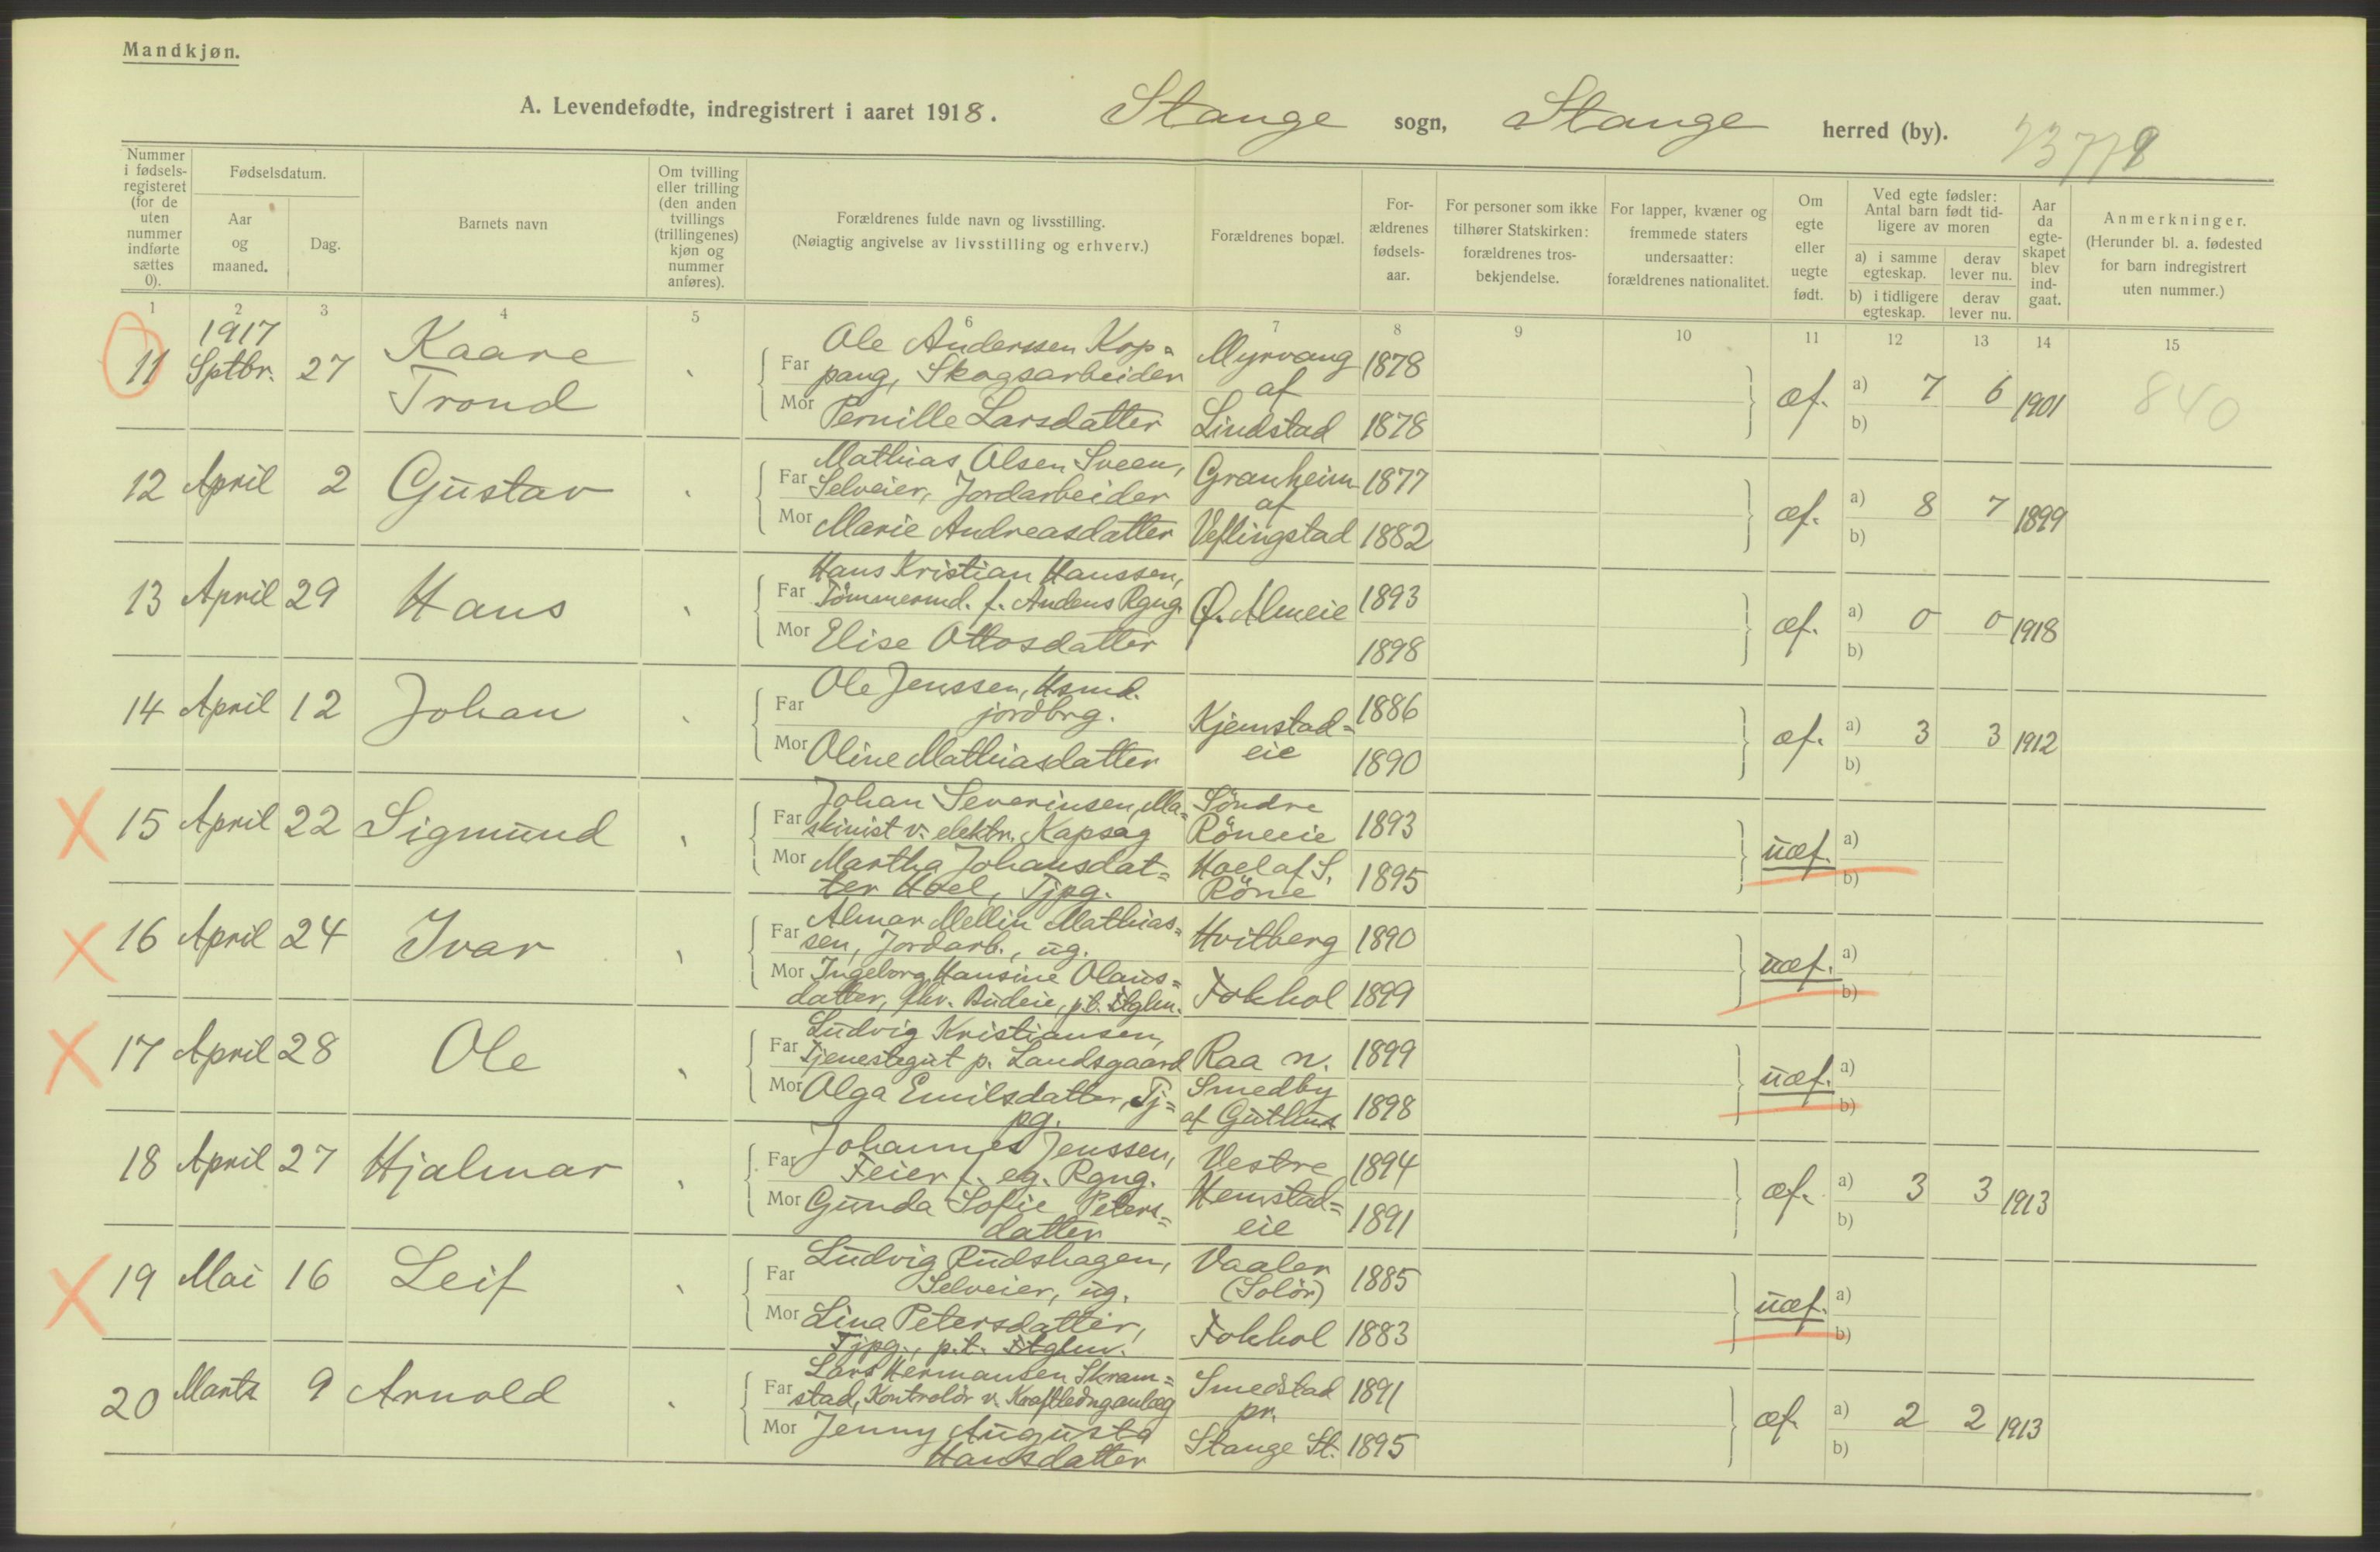 Mandkjøn.
A. Levendefødte, indregistrert i aaret 1918. Stange sogn, Stange herred (by).
Nummer i fødsels-registeret (for de uten nummer indførte sættes 0).
Fødselsdatum.
Aar og maaned.
Dag.
Barnets navn
Om tvilling eller trilling (den anden tvillings (trillingenes) kjøn og nummer anføres).
Forældrenes fulde navn og livsstilling.
(Nøiagtig angivelse av livsstilling og erhverv.)
Forældrenes bopæl.
For-ældrenes fødsels-aar.
For personer som ikke tilhører Statskirken: forældrenes tros-bekjendelse.
For lapper, kvæner og fremmede staters undersaatter: forældrenes nationalitet.
Om egte eller uegte født.
Ved egte fødsler: Antal barn født tid-ligere av moren
a) i samme egteskap.
derav lever nu.
b) i tidligere egteskap.
derav lever nu.
Aar da egte-skapet blev ind-gaat.
Anmerkninger.
(Herunder bl. a. fødested for barn indregistrert uten nummer.)
1 2 3 4 5 6 7 8 9 10 11 12 13 14 15
1917
11 Sptbr. 27 Kaare Trond
Far Ole Anderssen Kop=
pang, Skogsarbeider
Mor Pernille Larsdatter
Myrvang af Lindstad
1878
1878
æf. a) 7 6 1901 840
b)
12 April 2 Gustav
Far Mathias Olsen Sveen,
Selveier, Jordarbeider
Mor Marie Andreasdatter
Granheim af Veflingstad
1877
1882
æf. a) 8 7 1899
b)
13 April 29 Hans
Far Hans Kristian Hanssen,
Tömmermd. f. Andens Rgng.
Mor Elise Ottosdatter
Ø. Almeie
1893
1898
æf. a) 0 0 1918
b)
14 April 12 Johan
Far Ole Jenssen, Hsmd.
jordbrg.
Mor Oline Mathiasdatter
Kjemstad=
eie
1886
1890
æf. a) 3 3 1912
b)
X 15 April 22 Sigmund
Far Johan Severinsen, Ma=
skinist v. elektr. Kapsag
Mor Martha Johansdat=
ter Hoel, Tjpg.
Söndre Röneeie
Hoel af S. Röne
1893
1895
uæf. a)
b)
X 16 April 24 Ivar
Far Almar Mellin Mathias=
sen, Jordarb., ug.
Mor Ingeborg Hansine Olaus=
datter, fhv. Budeie, p.t.
Hvitberg
Fokhol
1890
1899
uæf. a)
b)
X 17 April 28 Ole
Far Ludvig Kristiansen,
Tjenestegut p. Landsgaard
Mor Olga Emilsdatter, Tj=
pg.
Raa n.
Smedby
af Guthus
1899
1898
uæf. a)
b)
18 April 27 Hjalmar
Far Johannes Jenssen,
Feier f. eg. Rgng.
Mor Gunda Sofie Peters=
datter
Vestre
Hemstad=
eie
1894
1891
æf. a) 3 3 1913
b)
X 19 Mai 16 Leif
Far Ludvig Rudshagen,
Selveier, ug.
Mor Lina Petersdatter,
Tjpg., p.t.
Vaaler
(Solör)
Fokhol
1885
1883
uæf. a)
b)
20 Marts 9 Arnold
Far Lars Hermansen Skram=
stad, Kontrolör v. Kraftledng anlæg
Mor Jenny Augusta
Hansdatter
Smedstad
pr.
Stange St.
1891
1895
æf. a) 2 2 1913
b)